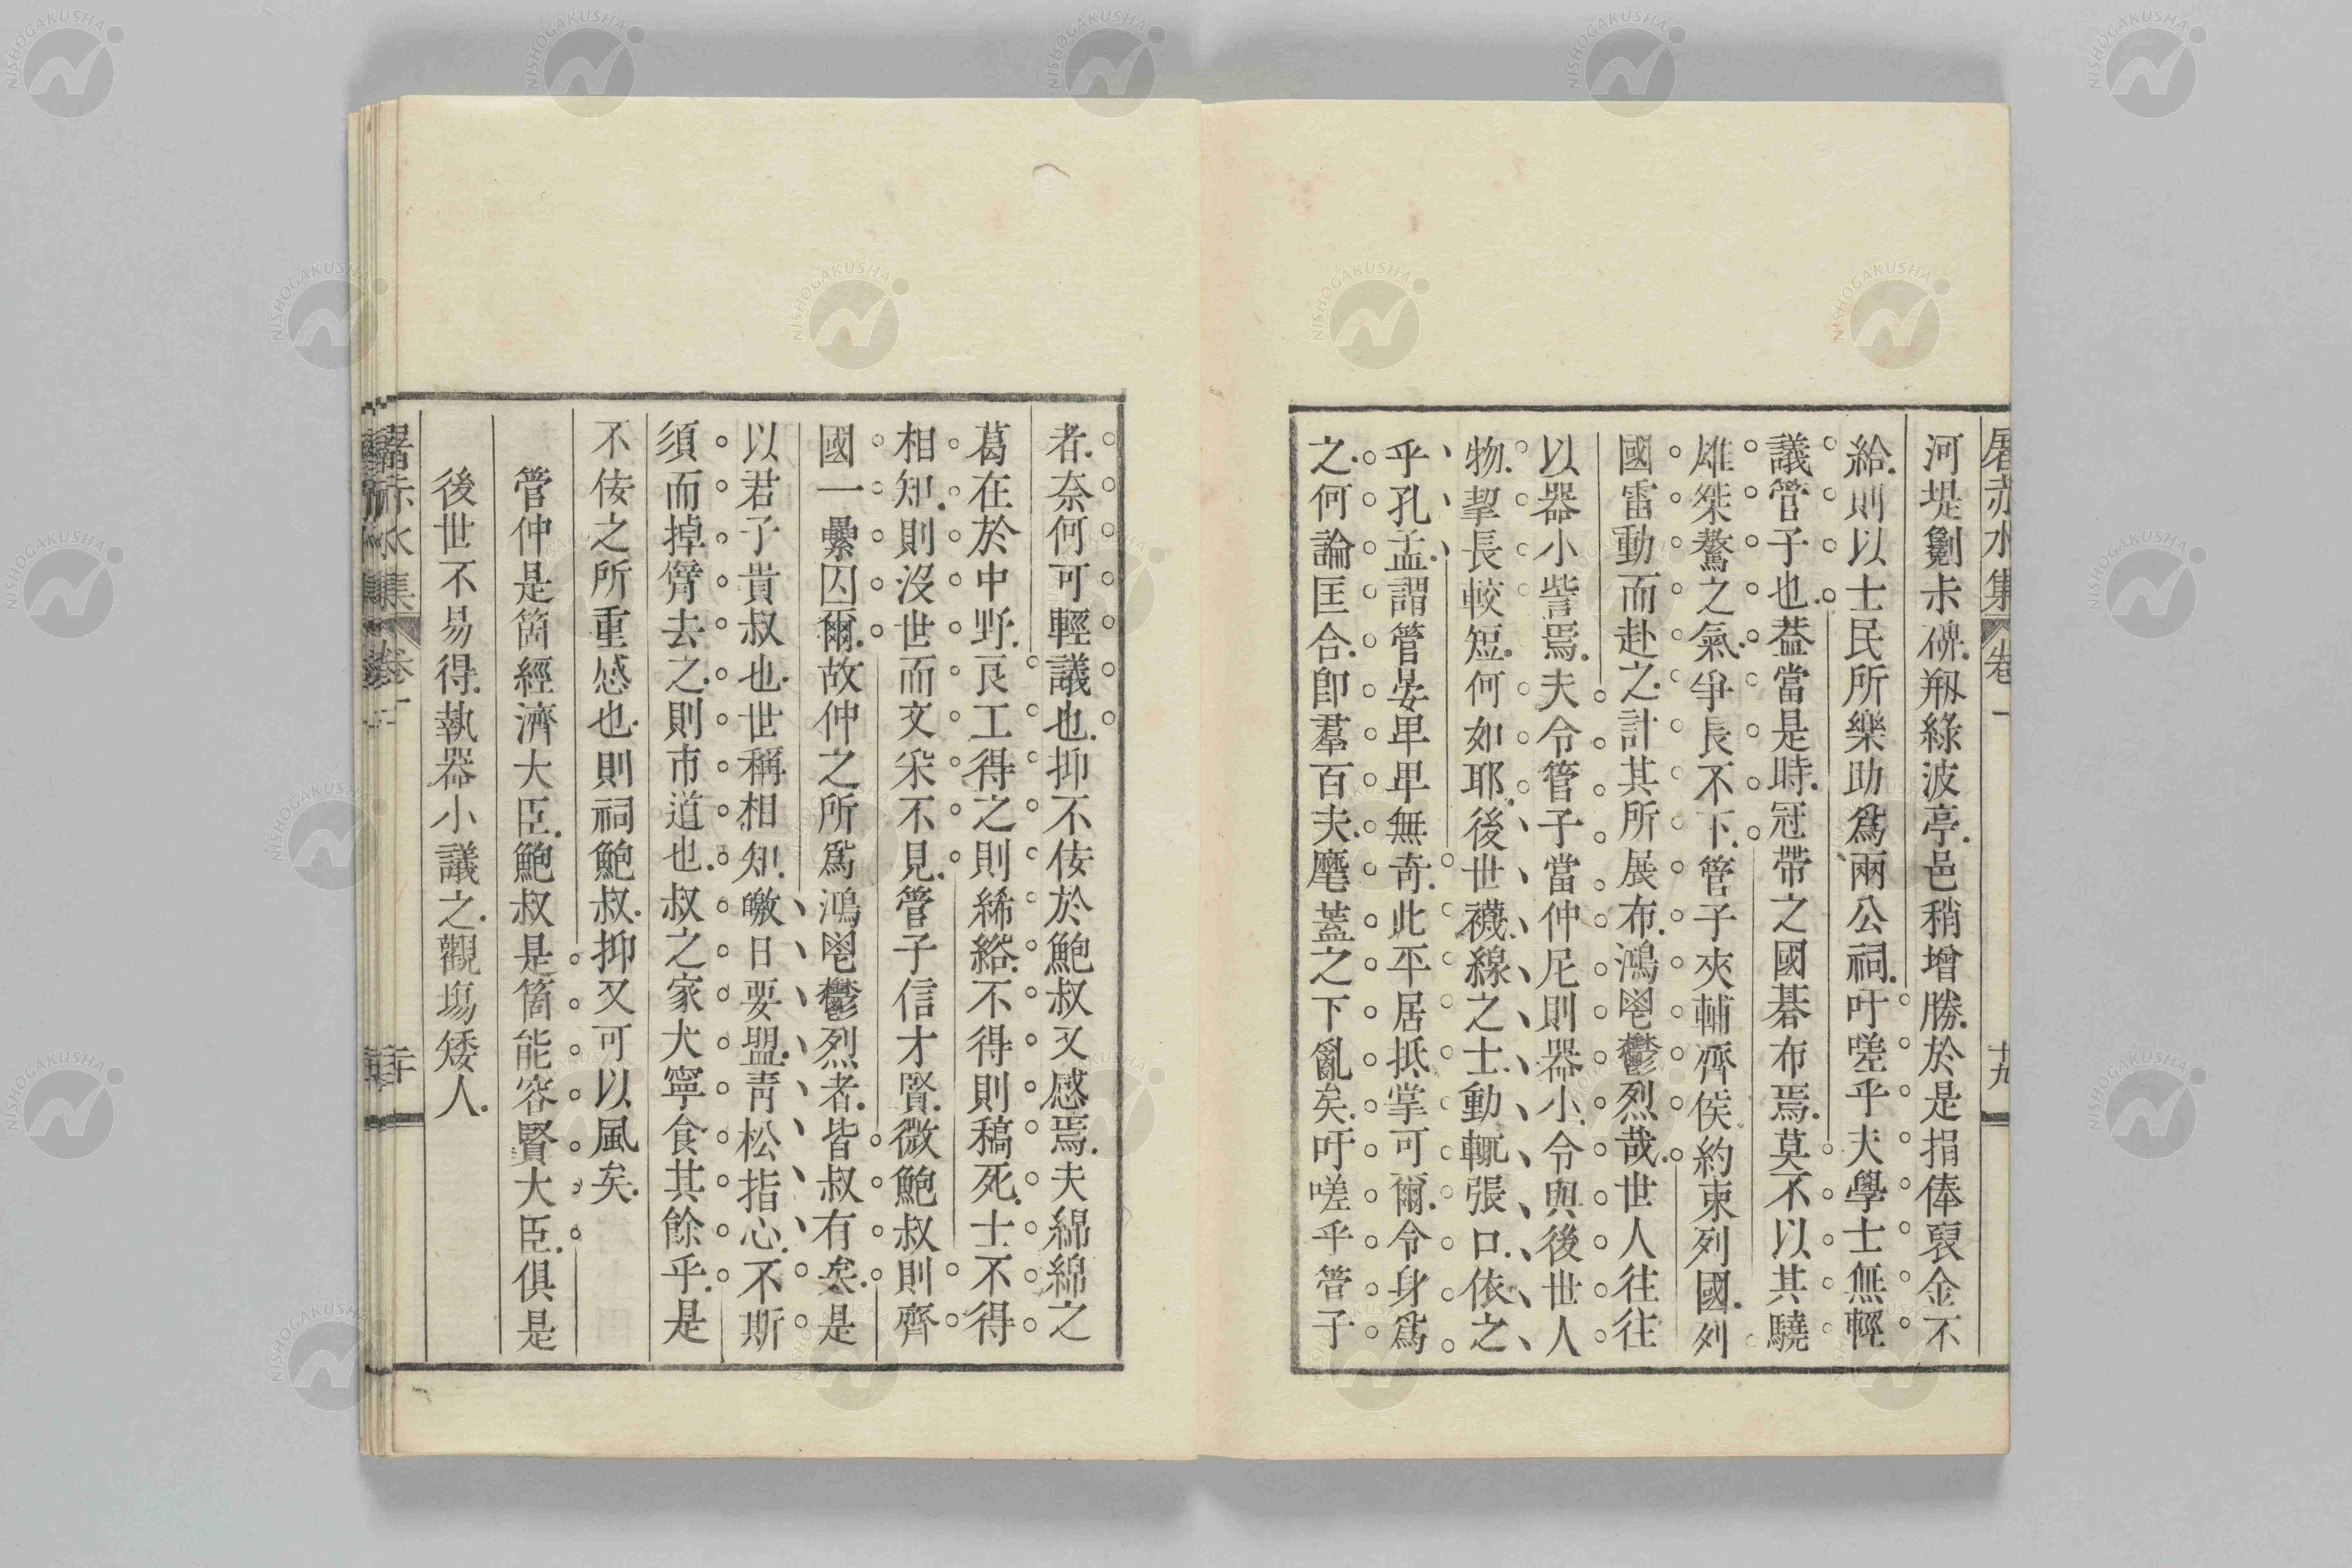 屠赤水集 卷一 十九
河堤劖未碑剏綠波亭邑稍增勝於是捐俸裒金不
給則以士民所樂助爲兩公祠吁嗟乎夫學士無輕
議管子也葢當是時冠帶之國碁布焉莫不以其驍
雄桀驁之氣爭長不下管子夾輔齊侯約束列國列
國雷動而赴之計其所展布鴻鬯鬱烈哉世人往往
以器小訾焉夫令管子當仲尼則器小令與後世人
物挈長較短何如耶後世襪線之士動輒張口依之
乎孔孟謂管晏卑卑無奇此平居抵掌可爾令身爲
之何論匡合卽羣百夫麾蓋之下亂矣吁嗟乎管子
者奈何可輕議也抑不佞於鮑叔又感焉夫綿綿之
葛在於中野良工得之則絺綌不得則稿死士不得
相知則沒世而文采不見管子信才賢微鮑叔則齊
國一纍囚爾故仲之所爲鴻鬯鬱烈者皆叔有矣是
以君子貴叔也世稱相知皦日要盟靑松指心不斯
須而掉臂去之則市道也叔之家犬寧食其餘乎是
不佞之所重感也則祠鮑叔抑又可以風矣
管仲是箇經濟大臣鮑叔是箇能容賢大臣俱是
後世不易得執器小議之觀塲矮人
屠赤水集 卷一 二十
NISHOGAKUSHA